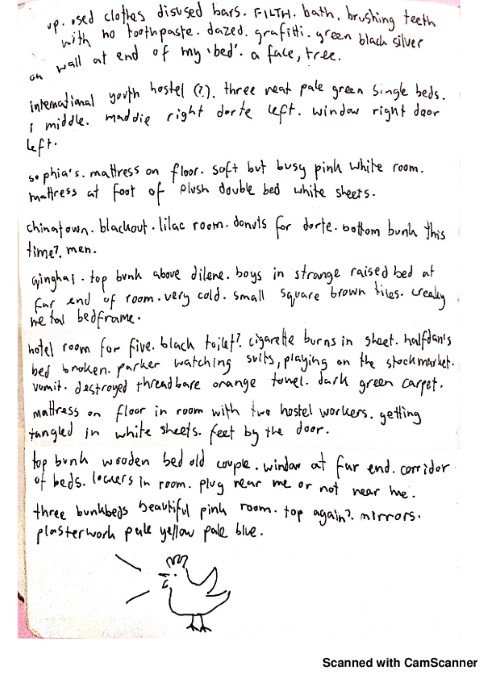 up. used clothes disused bars. FILTH. bath. brushing teeth
with no toothpaste. dazed. grafitti. green black silver
on wall at end of my 'bed'. a face, tree.
international youth hostel (?). three neat pale green single beds.
I middle. maddie right dorte left. window right door
left.
sophia's. mattress on floor. soft but busy pink white room.
mattress at foot of plush double bed white sheets.
chinatown. blackout. lilac room. donuts for dorte. bottom bunk this
time?. men.
qinghai. top bunk above dilene. boys in strange raised bed at
far end of room. very cold. small square brown tiles. creaky
metal bedframe.
hotel room for five. black toilet?. cigarette burns in sheet. halfdan's
bed broken. parker watching suits, playing on the stockmarket.
vomit. destroyed threadbare orange towel. dark green carpet.
mattress on floor in room with two hostel workers. getting
tangled in white sheets. feet by the door.
top bunk wooden bed old couple. window at far end. corridor
of beds. lockers in room. plug near me or not near me.
three bunkbeds beautiful pink room. top again?. mirrors.
plasterwork pale yellow pale blue.
Scanned with CamScanner